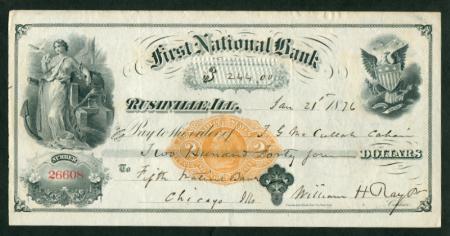 First National Bank
$ 244.00
RUSHVILLE, ILL. Jan 21st 1876
Pay to the order of T. G. McCulloh Cashier
Two Hundred Forty four DOLLARS
NUMBER
26608
To Fifth National Bank
Chicago Ills William H Ray